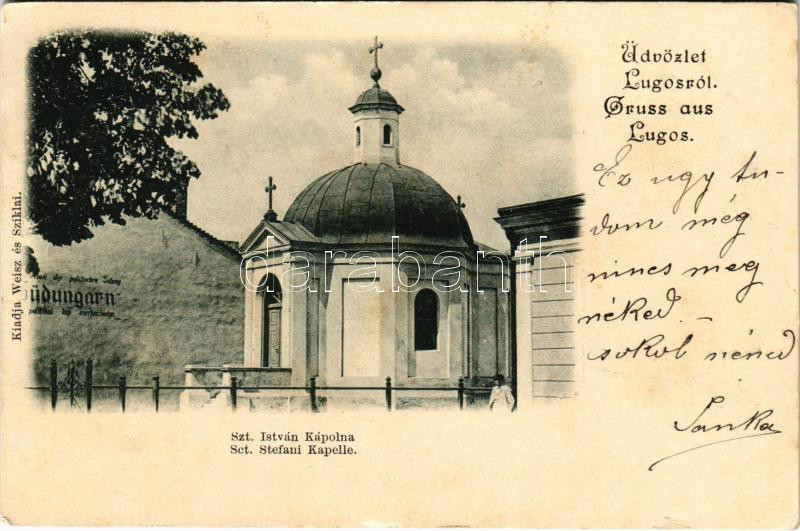 Üdvözlet
Lugosról.
Gruss aus
Lugos.
Ez ugy tu-
dom még
nincs meg
néked. -
sokol néned
Sanka
Kiadja Weisz és Sziklai.
der politischen Zeitung
üdungarn
politikai lap szerkesztősége
darabanth.com
Szt. István Kápolna
Sct. Stefani Kapelle.